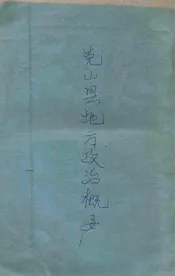 克山县地方政治概要